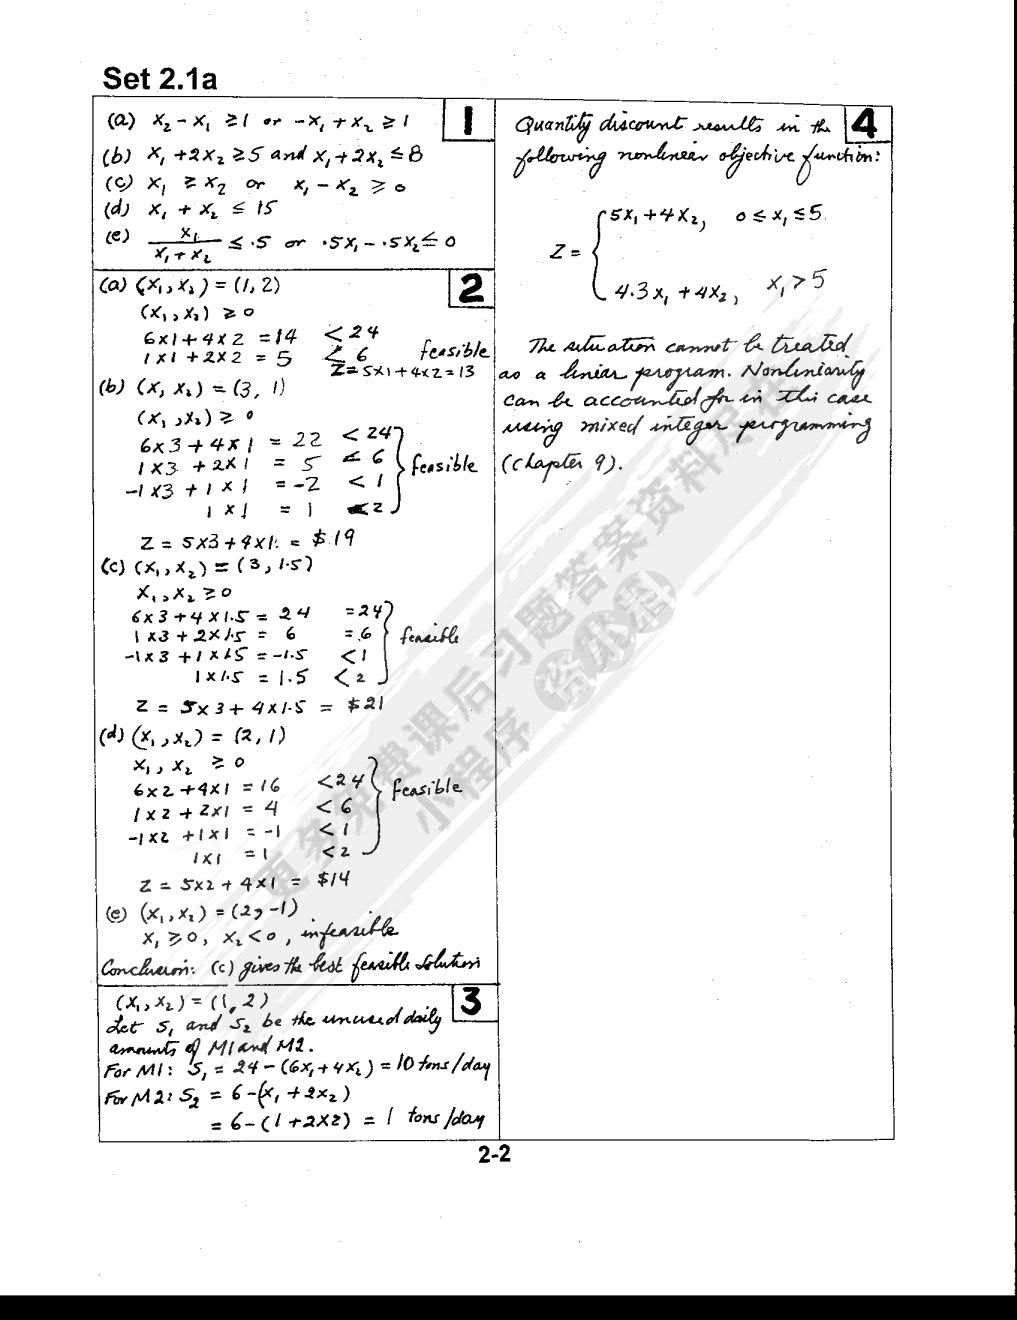 Set 2.1a
1
(a) x₂ - x₁ ≥ 1 or -x₁ + x₂ ≥ 1
(b) x₁ + 2x₂ ≥ 5 and x₁ + 2x₂ ≤ 8
(c) x₁ ≥ x₂ or x₁ - x₂ ≥ 0
(d) x₁ + x₂ ≤ 15
(e) x₁ / (x₁ + x₂) ≤ .5 or .5x₁ - .5x₂ ≤ 0
2
(a) (x₁, x₂) = (1, 2)
(x₁, x₂) ≥ 0
6x1 + 4x2 = 14 < 24
1x1 + 2x2 = 5 < 6 feasible
Z = 5x1 + 4x2 = 13
(b) (x₁ x₂) = (3, 1)
(x₁, x₂) ≥ 0
6x3 + 4x1 = 22 < 24
1x3 + 2x1 = 5 < 6 feasible
-1x3 + 1x1 = -2 < 1
1x1 = 1 < 2
Z = 5x3 + 4x1 = $19
(c) (x₁, x₂) = (3, 1.5)
x₁, x₂ ≥ 0
6x3 + 4x1.5 = 24 = 24
1x3 + 2x1.5 = 6 = 6 feasible
-1x3 + 1x1.5 = -1.5 < 1
1x1.5 = 1.5 < 2
Z = 5x3 + 4x1.5 = $21
(d) (x₁, x₂) = (2, 1)
x₁, x₂ ≥ 0
6x2 + 4x1 = 16 < 24
1x2 + 2x1 = 4 < 6 feasible
-1x2 + 1x1 = -1 < 1
1x1 = 1 < 2
Z = 5x2 + 4x1 = $14
(e) (x₁, x₂) = (2, -1)
x₁ ≥ 0, x₂ < 0, infeasible
Conclusion: (c) gives the best feasible solution
3
(x₁, x₂) = (1, 2)
Let S₁ and S₂ be the unused daily
amounts of M1 and M2.
For M1: S₁ = 24 - (6x₁ + 4x₂) = 10 tons/day
For M2: S₂ = 6 - (x₁ + 2x₂)
= 6 - (1 + 2x2) = 1 tons/day
4
Quantity discount results in the
following nonlinear objective function:
Z = { 5x₁ + 4x₂, 0 ≤ x₁ ≤ 5
4.3x₁ + 4x₂, x₁ > 5
The situation cannot be treated
as a linear program. Nonlinearity
can be accounted for in this case
using mixed integer programming
(chapter 9).
更多免费课后习题答案资料尽在
小程序 资小猫
2-2